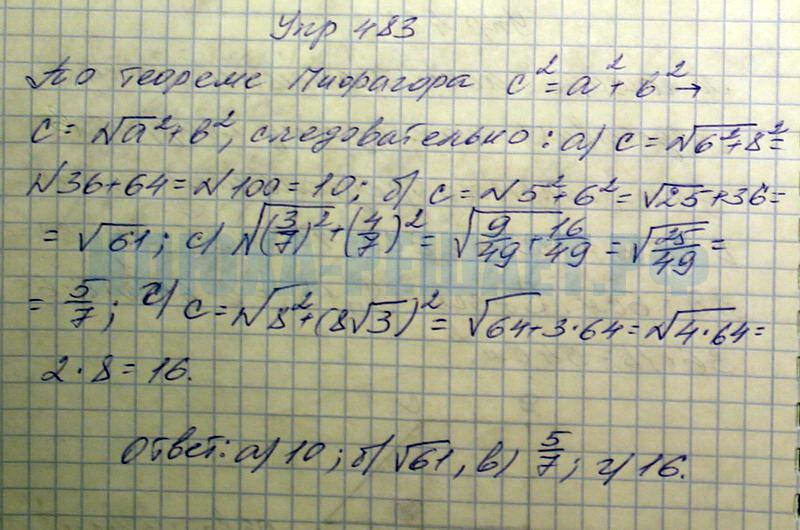 Упр 483
По теореме Пифагора c² = a² + b² →
c = √a² + b², следовательно: а) c = √6² + 8² =
√36 + 64 = √100 = 10; б) c = √5² + 6² = √25 + 36 =
= √61; с) √(3/7)² + (4/7)² = √9/49 + 16/49 = √25/49 =
= 5/7; г) c = √8² + (8√3)² = √64 + 3·64 = √4·64 =
2·8 = 16.
Ответ: а) 10; б) √61, в) 5/7; г) 16.